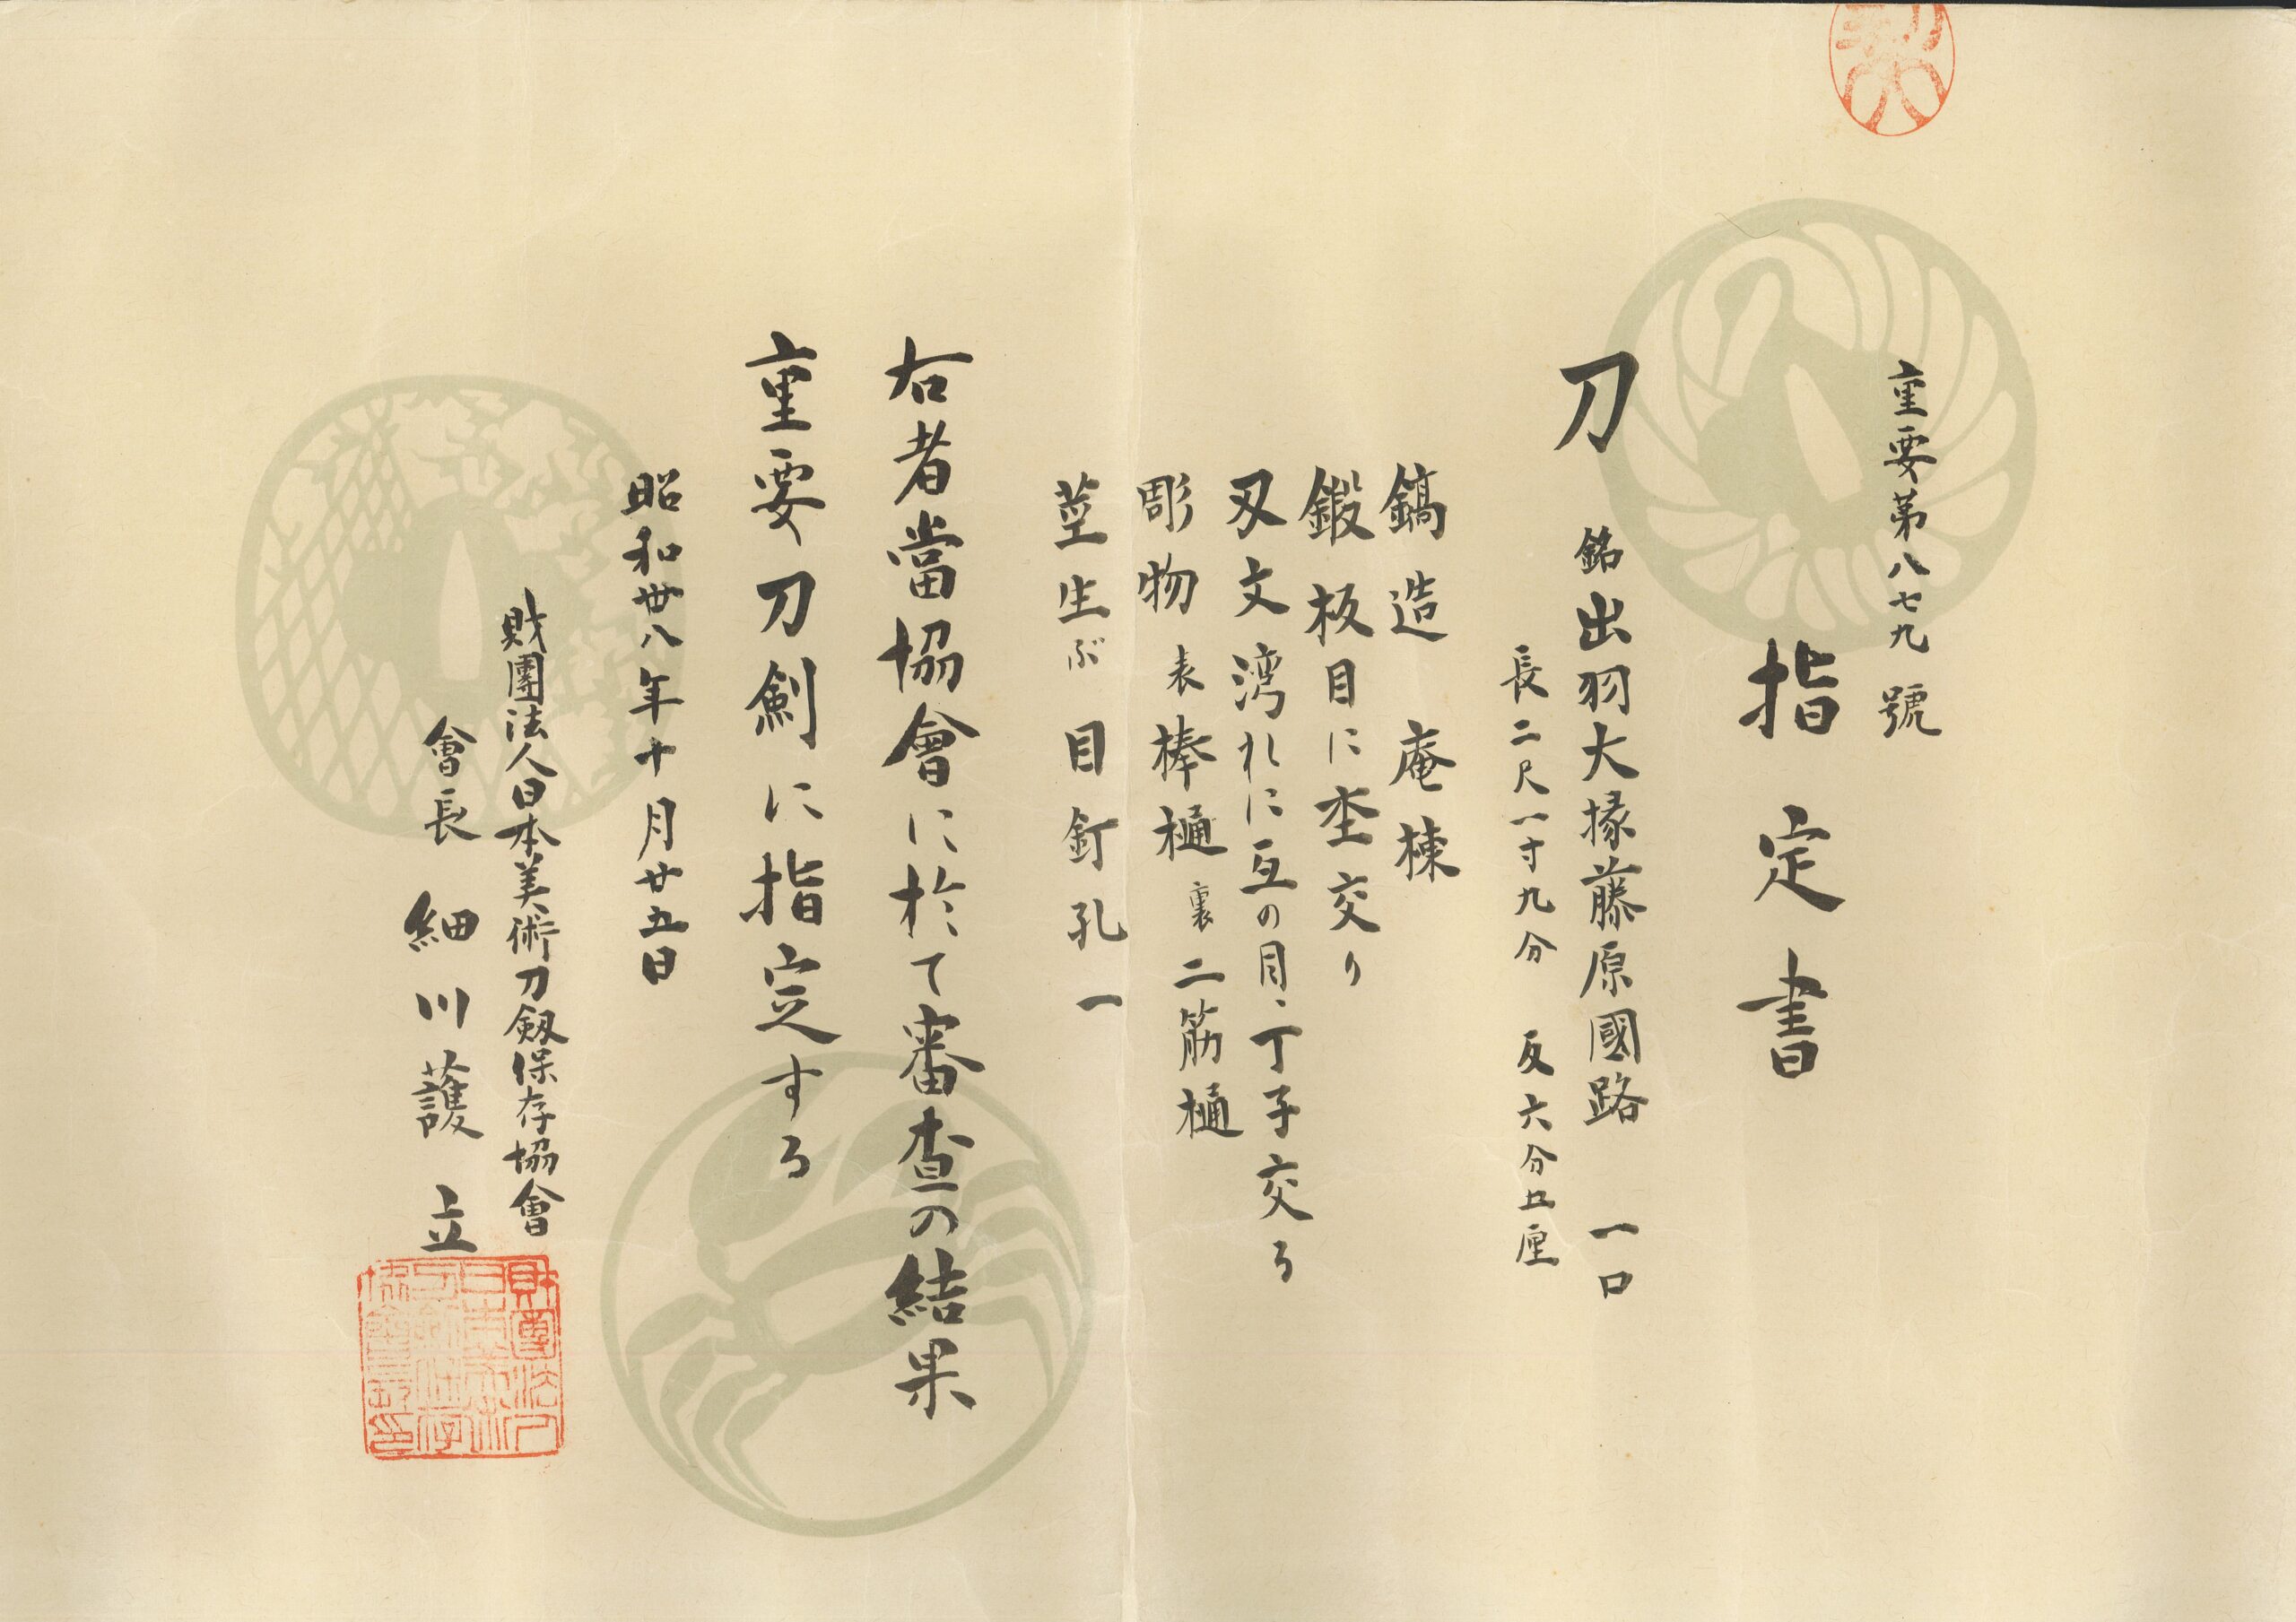 重要第八七九號
指定書
刀 銘出羽大掾藤原國路 一口
長二尺一寸九分 反六分五厘
鎬造 庵棟
鍛 板目に杢交り
刃文 湾れに互の目、丁子交る
彫物 表棒樋 裏二筋樋
茎 生ぶ 目釘孔一
右者當協會に於て審査の結果
重要刀劍に指定する
昭和卅八年十月廿五日
財團法人日本美術刀劔保存協會
會長 細川護立
財團法人
日本美術
刀劍保存
協會長印